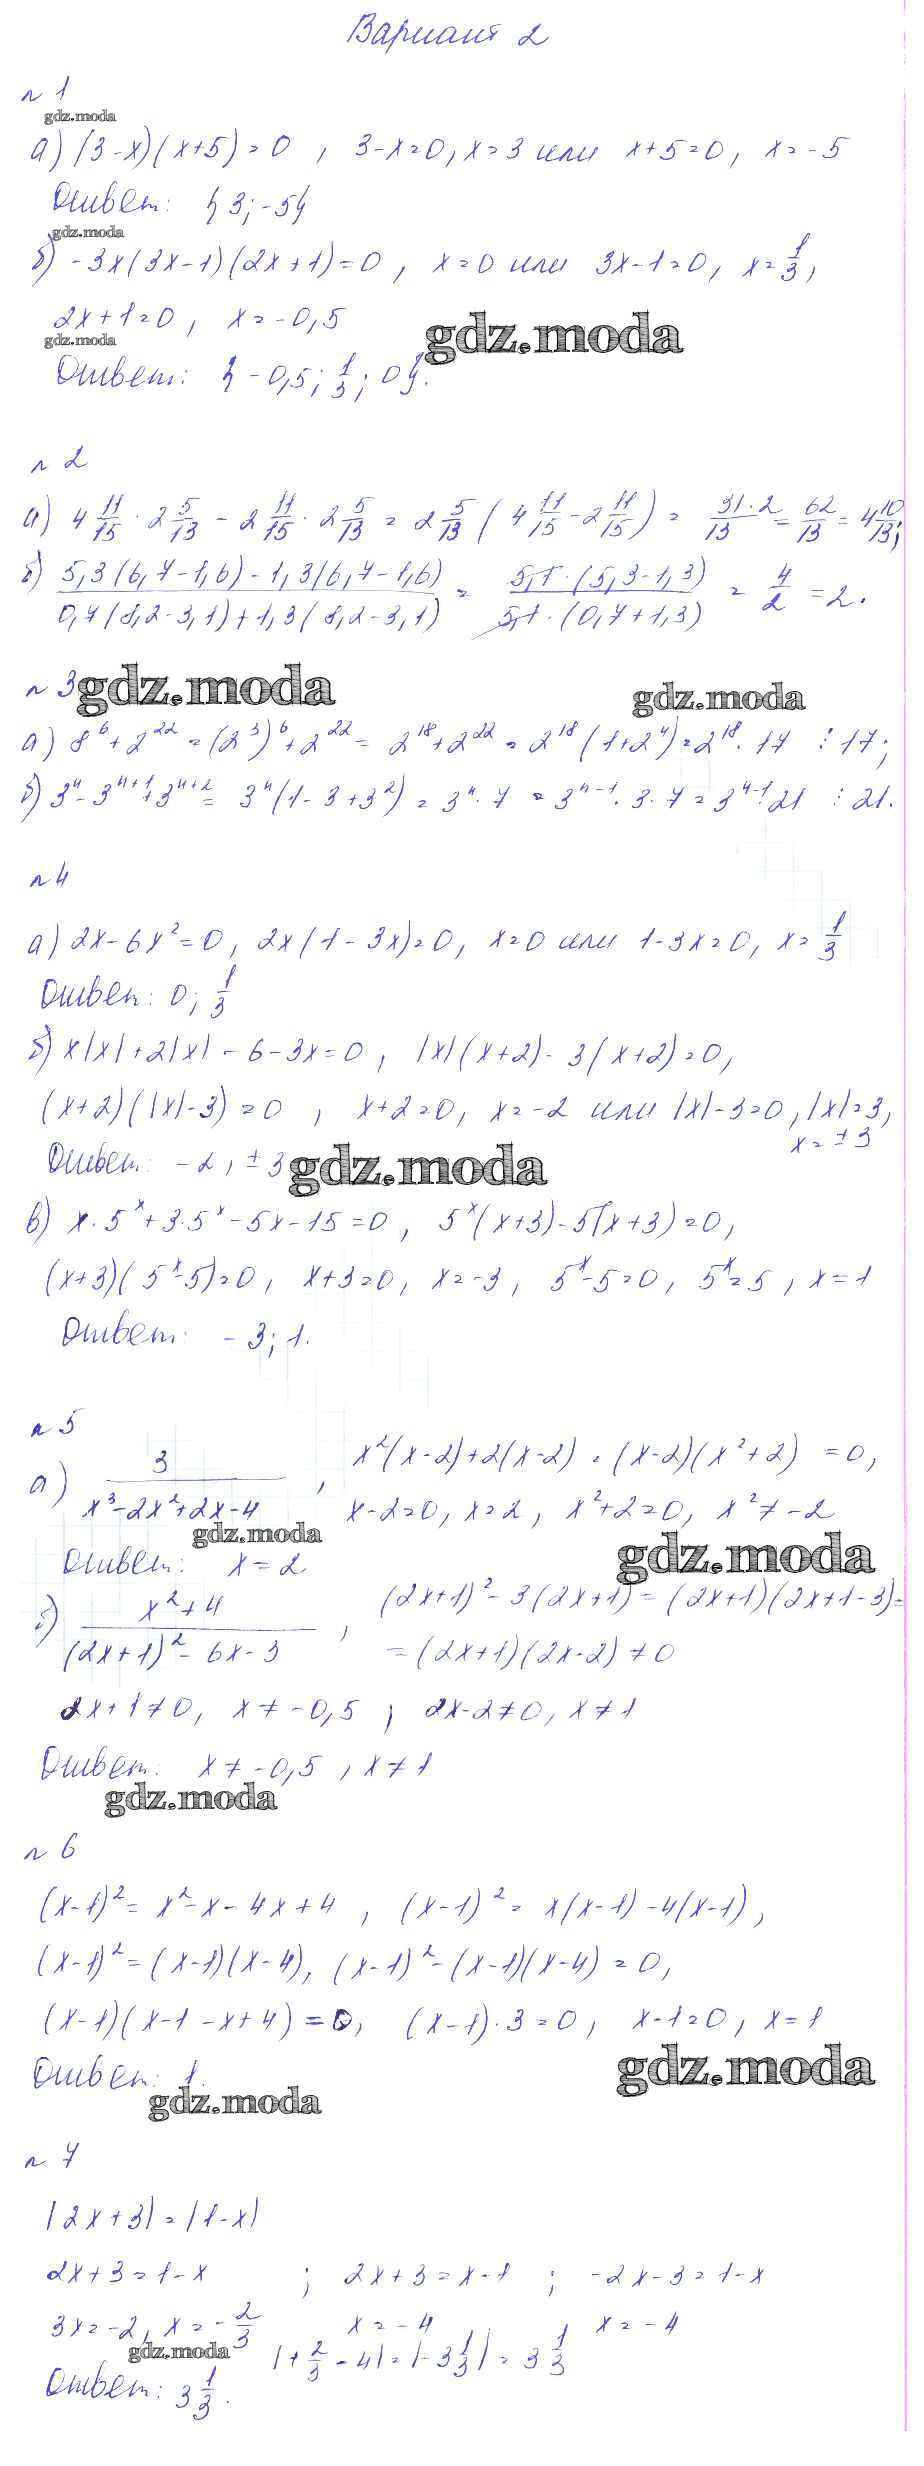 Вариант 2
№ 1
gdz.moda
а) (3-x)(x+5)=0 , 3-x=0, x=3 или x+5=0, x=-5
Ответ: {3; -5}
gdz.moda
б) -3x(3x-1)(2x+1)=0 , x=0 или 3x-1=0, x=1/3,
2x+1=0, x=-0,5
gdz.moda
gdz.moda
Ответ: {-0,5; 1/3; 0}.
№ 2
а) 4 11/15 · 2 5/13 - 2 11/15 · 2 5/13 = 2 5/13 (4 11/15 - 2 11/15) = 31·2/13 = 62/13 = 4 10/13;
б) 5,3(6,7-1,6)-1,3(6,7-1,6) / 0,7(8,2-3,1)+1,3(8,2-3,1) = 5,1·(5,3-1,3) / 5,1·(0,7+1,3) = 4/2 = 2.
№ 3
gdz.moda
gdz.moda
а) 8⁶+2²² = (2³)⁶+2²² = 2¹⁸+2²² = 2¹⁸(1+2⁴) = 2¹⁸·17 ⋮ 17;
б) 3ⁿ-3ⁿ⁺¹+3ⁿ⁺² = 3ⁿ(1-3+3²) = 3ⁿ·7 = 3ⁿ⁻¹·3·7 = 3ⁿ⁻¹·21 ⋮ 21.
№ 4
а) 2x-6x²=0, 2x(1-3x)=0, x=0 или 1-3x=0, x=1/3
Ответ: 0; 1/3
б) x|x|+2|x|-6-3x=0, |x|(x+2)-3(x+2)=0,
(x+2)(|x|-3)=0 , x+2=0, x=-2 или |x|-3=0, |x|=3,
x=±3
Ответ: -2, ±3
gdz.moda
в) x·5ˣ+3·5ˣ-5x-15=0, 5ˣ(x+3)-5(x+3)=0,
(x+3)(5ˣ-5)=0, x+3=0, x=-3, 5ˣ-5=0, 5ˣ=5, x=1
Ответ: -3; 1.
№ 5
а) 3 / x³-2x²+2x-4 , x²(x-2)+2(x-2) = (x-2)(x²+2) =0,
x-2=0, x=2, x²+2=0, x²≠-2
gdz.moda
gdz.moda
Ответ: x=2
б) x²+4 / (2x+1)²-6x-3 , (2x+1)²-3(2x+1)=(2x+1)(2x+1-3)=
=(2x+1)(2x-2)≠0
2x+1≠0, x≠-0,5 ; 2x-2≠0, x≠1
Ответ: x≠-0,5 , x≠1
gdz.moda
№ 6
(x-1)²=x²-x-4x+4 , (x-1)²=x(x-1)-4(x-1),
(x-1)²=(x-1)(x-4), (x-1)²-(x-1)(x-4)=0,
(x-1)(x-1-x+4)=0, (x-1)·3=0, x-1=0, x=1
gdz.moda
Ответ: 1.
gdz.moda
№ 7
|2x+3|=|1-x|
2x+3=1-x ; 2x+3=x-1 ; -2x-3=1-x
3x=-2, x=-2/3 x=-4 x=-4
gdz.moda
|+2/3-4|=|-3 1/3|=3 1/3
Ответ: 3 1/3.